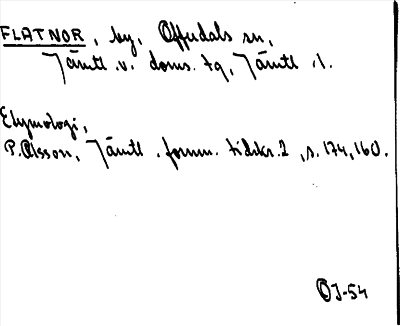 FLATNOR, by, Offerdals sn,
Jämtl. v. doms. tg, Jämtl. l.
Etymologi,
P. Olsson, Jämtl. fornm. tidskr. 2, s. 174, 160.
OJ-54